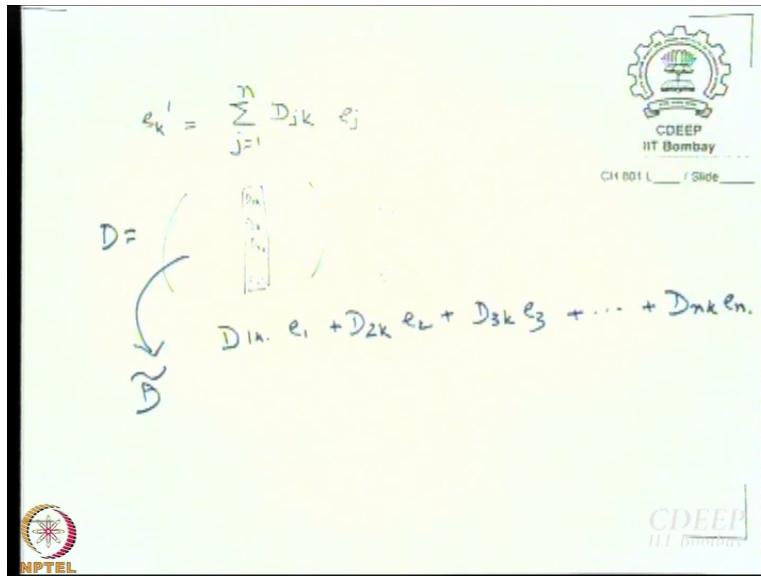 CDEEP
IIT Bombay
CH 801 L___ / Slide___
e_k' = \sum_{j=1}^{n} D_{jk} e_j
D =
D_{1k.} e_1 + D_{2k} e_2 + D_{3k} e_3 + ··· + D_{nk} e_n.
\tilde{D}
CDEEP
IIT Bombay
NPTEL